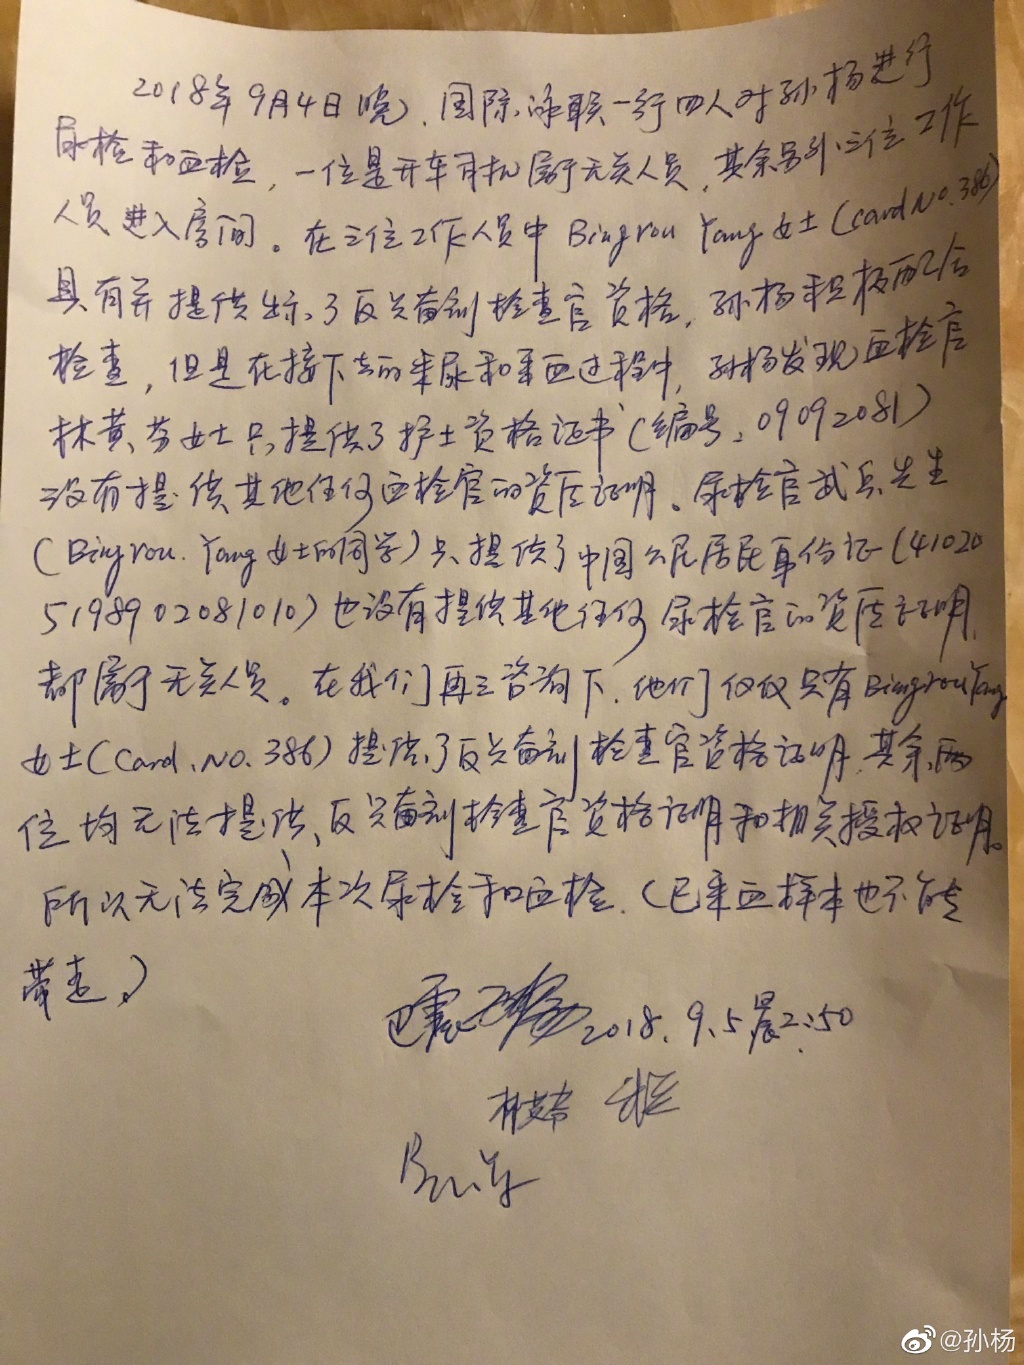 2018年9月4日晚、国际泳联一行四人对孙杨进行
尿检和血检，一位是开车司机属于无关人员，其余另外三位工作
人员进入房间。在三位工作人员中Bingrou Yang女士(card No.386)
具有并提供出示了反兴奋剂检查官资格，孙杨积极配合
检查，但是在接下去的采尿和采血过程中，孙杨发现血检官
林黄芬女士只提供了护士资格证书(编号：09092081)
没有提供其他任何血检官的资质证明。尿检官武兵先生
(Bingrou.Yang女士的同学)只提供了中国公民居民身份证(41020
5198902081010)也没有提供其他任何尿检官的资质证明，
都属于无关人员。在我们再三咨询下，他们仅仅只有Bingrou Yang
女士(Card.No.386)提供了反兴奋剂检查官资格证明，其余两
位均无法提供、反兴奋剂检查官资格证明和相关授权证明。
所以无法完成本次尿检和血检.(已采血样本也不能
带走。)
巴震 2018.9.5晨2:50
@孙杨